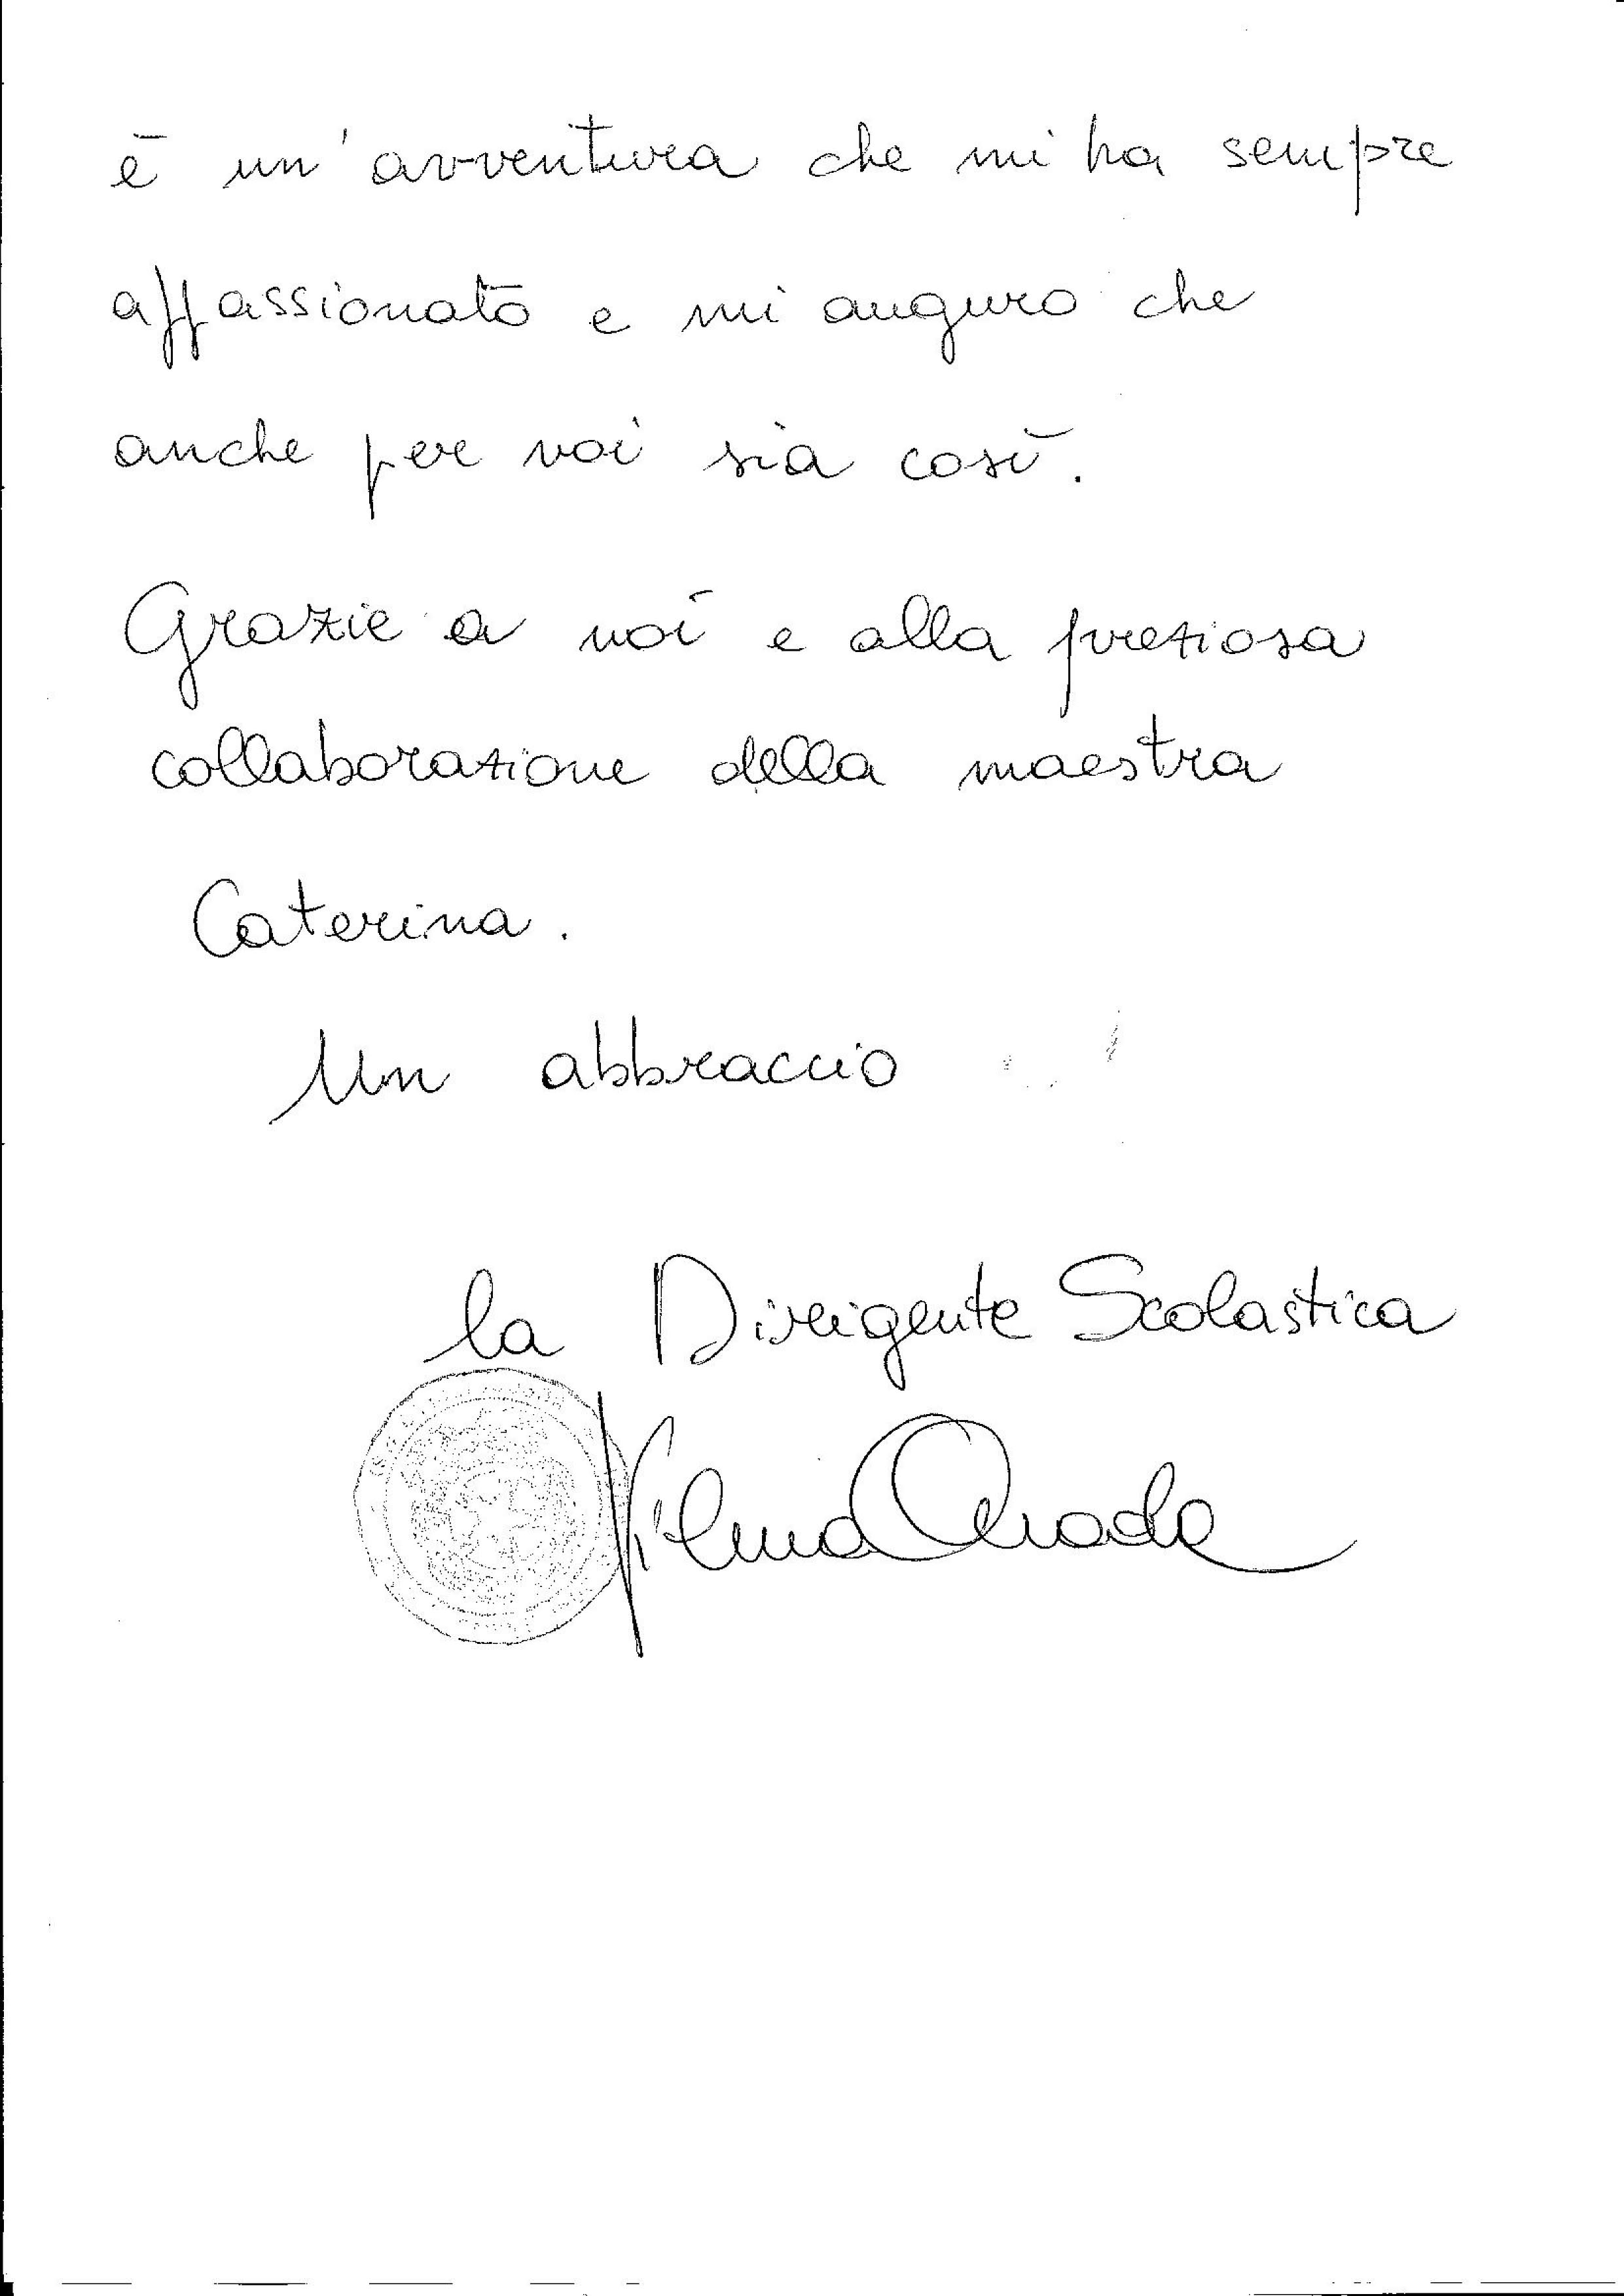 è un'avventura che mi ha sempre
affassionato e mi auguro che
anche per voi sia così.
Grazie a voi e alla preziosa
collaborazione della maestra
Caterina.
Un abbraccio
la Dirigente Scolastica
Vilma